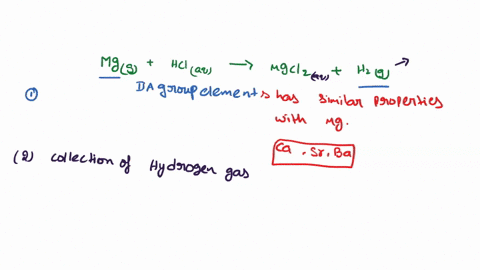 Mg(g) + HCl(aq) → MgCl2(aq) + H2(g) ↗
① IIA group elements has similar properties
with Mg.
Ca, Sr, Ba
(2) collection of Hydrogen gas